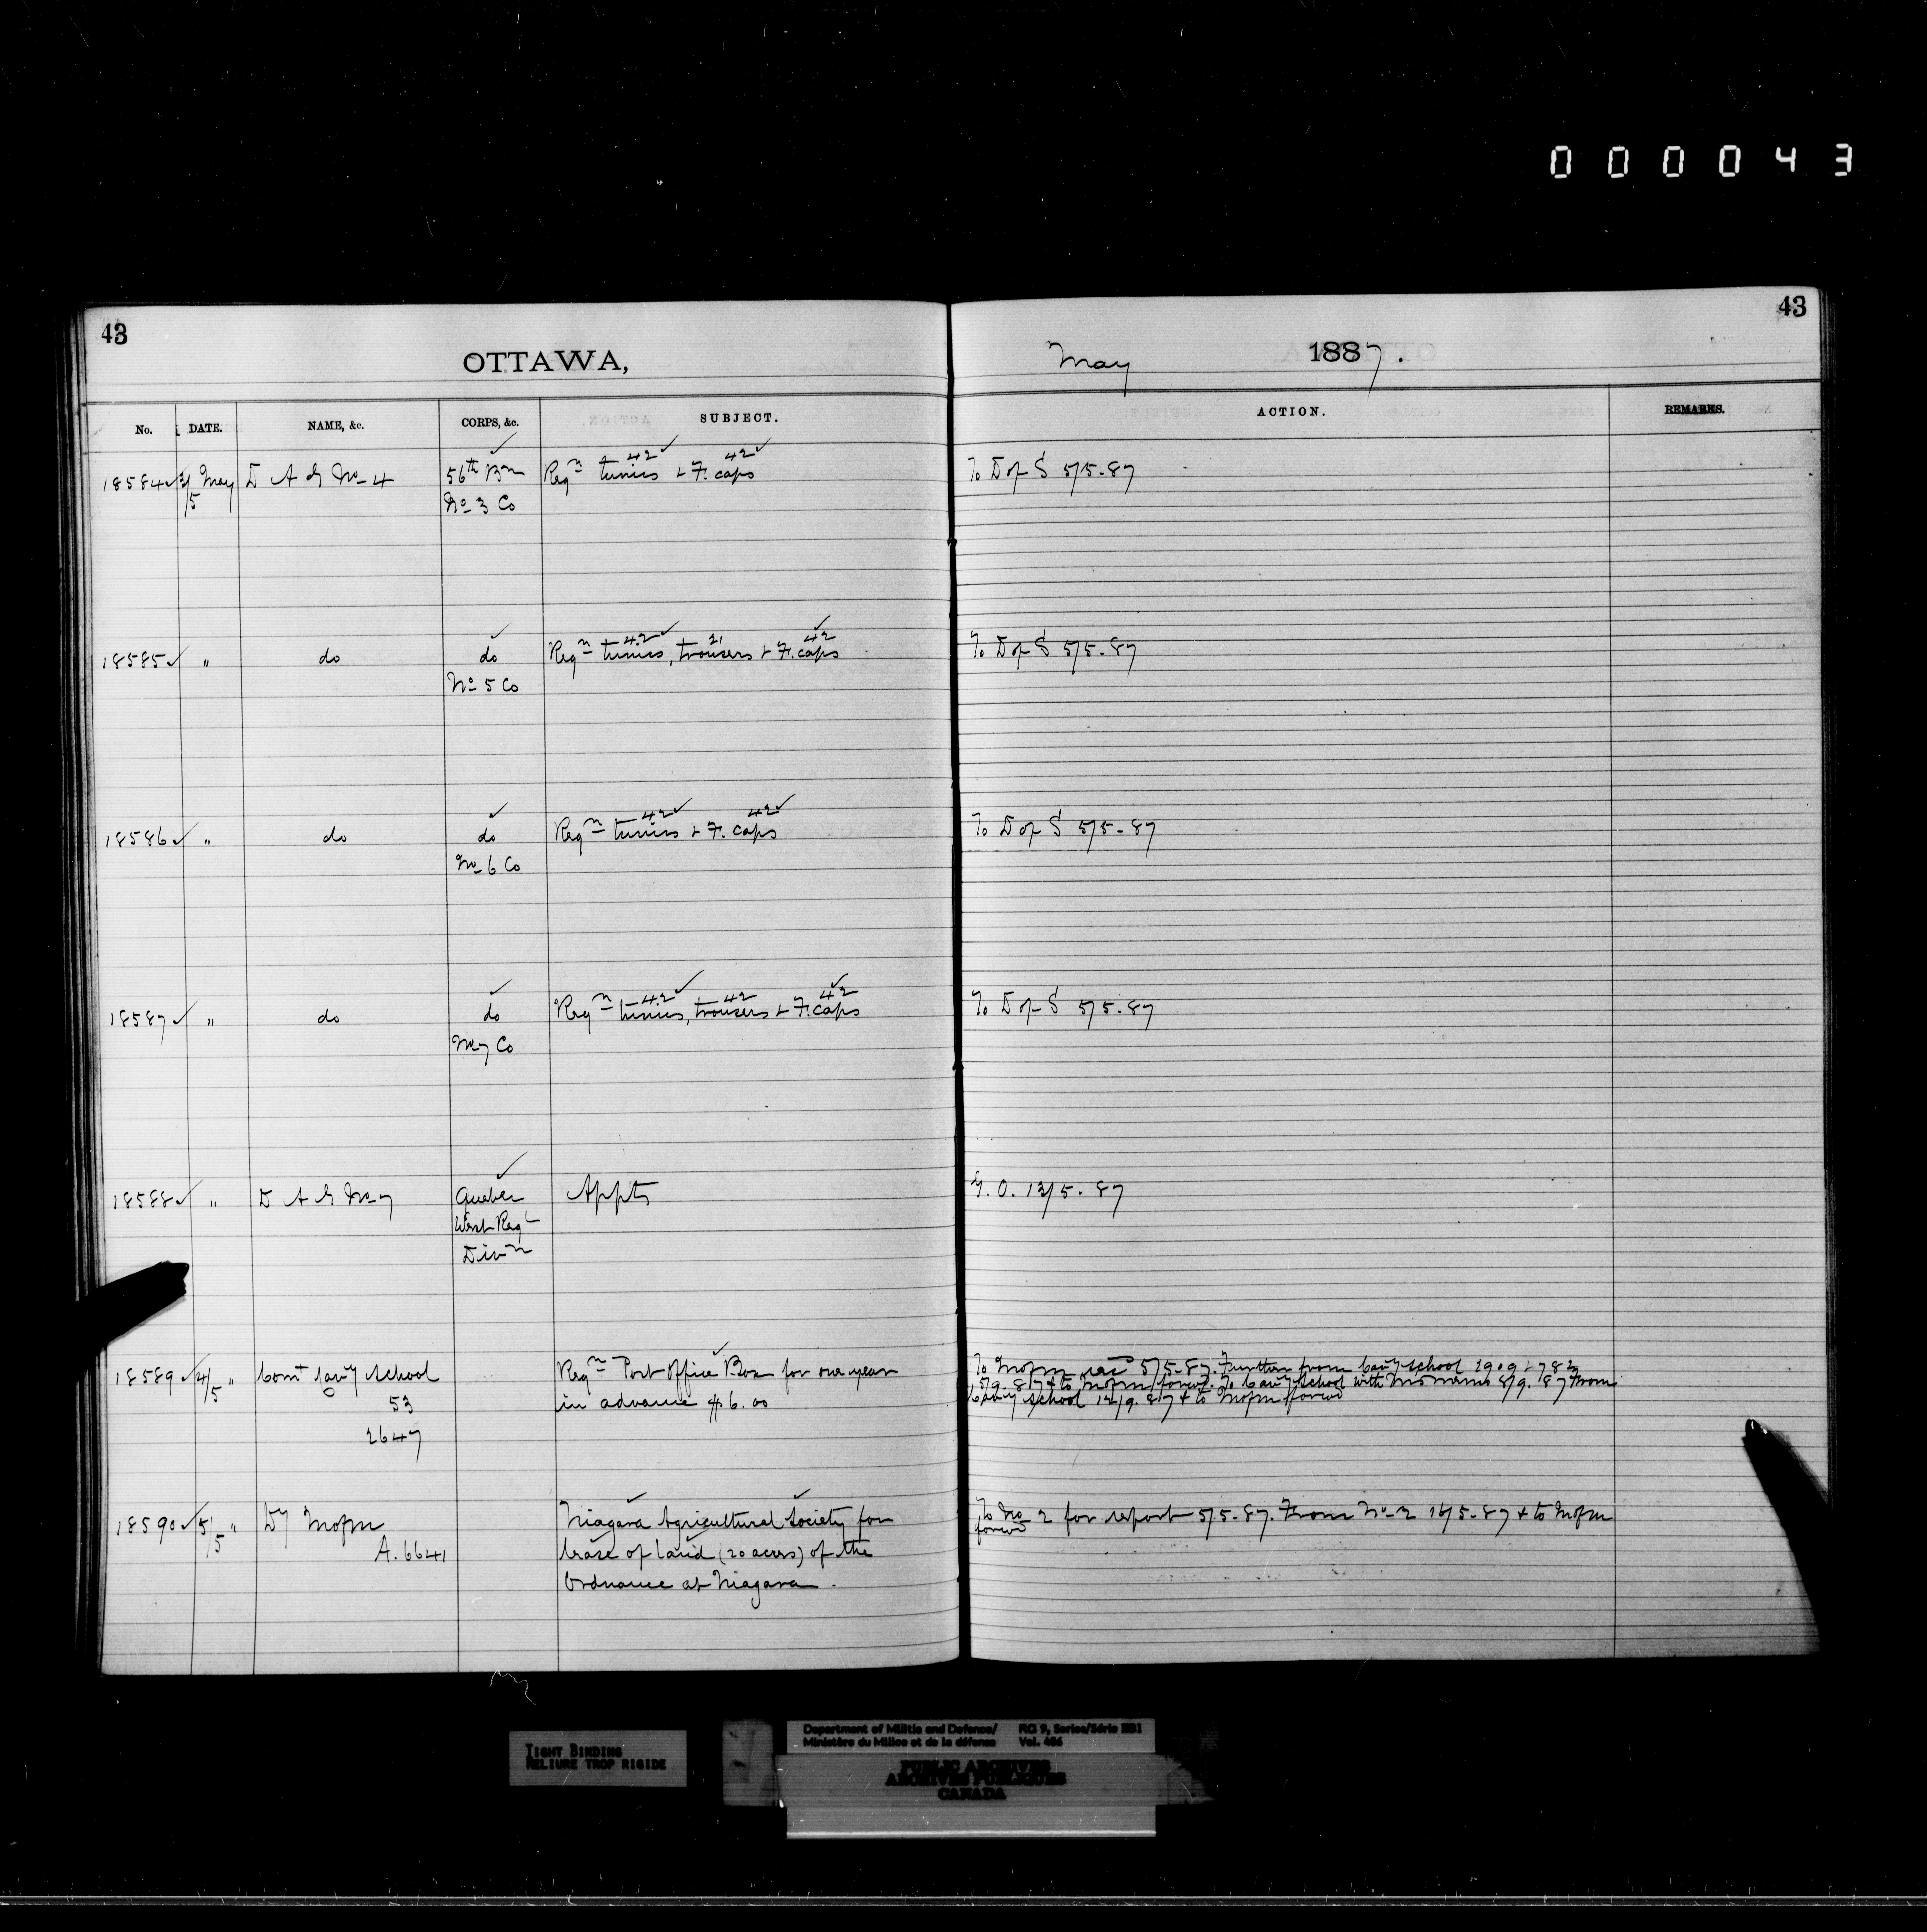 000043
43
43
OTTAWA,
May 1887.
No. DATE. NAME, &c. CORPS, &c. SUBJECT. ACTION. REMARKS.
18584 3/5 May D A G No 4 56th Bn Reqn tunics 42 & F. caps 42 To D of S 5/5-87
No 3 Co
18585 " do do Reqn tunics 42, trousers 21 & F. caps 42 To D of S 5/5-87
No 5 Co
18586 " do do Reqn tunics 42 & F. caps 42 To D of S 5/5-87
No 6 Co
18587 " do do Reqn tunics 42, trousers 42 & F. caps 42 To D of S 5/5-87
No 7 Co
18588 " D A G No 7 Quebec Appts G. O. 13/5-87
West Regl
Divn
18589 4/5 " Comt Cavy School Reqn Post Office Box for one year
in advance $6.00
53
2647
To Mofm 5/5-87. Further from Cavy School
5/9.87 & to Mofm forwd. To Cavy School with 8/9.87 From
Cavy School 12/9.87 & to Mofm forwd
18590 5/5 " Dy Mofm Niagara Agricultural Society for
A. 6641 lease of land (20 acres) of the
Ordnance at Niagara.
To No 2 for report 5/5-87. From No 2 16/5-87 & to Mofm
forwd
TIGHT BINDING
RELIURE TROP RIGIDE
Department of Militia and Defence/
Ministère du Milice et de la défense
RG 9, Series/Série IIB1
Vol. 486
PUBLIC ARCHIVES
ARCHIVES PUBLIQUES
CANADA